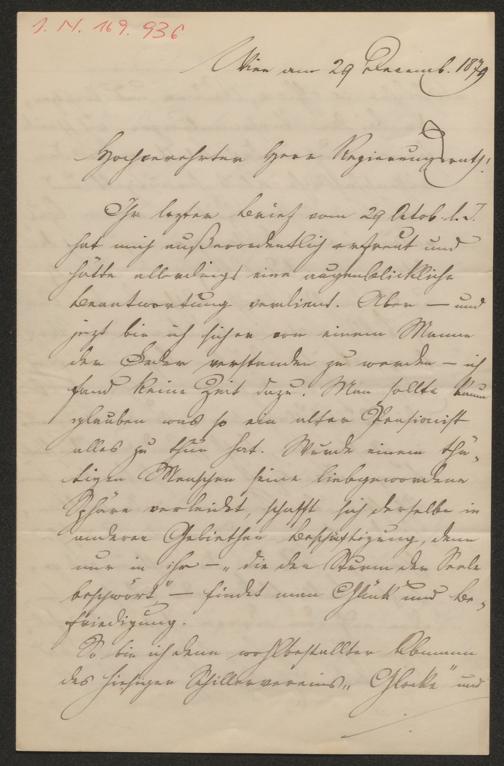 J. N. 169.936
Wien am 29 Decemb. 1879
Hochverehrter Herr Regierungsrath!
Ihr letzter Brief vom 29 Octob. l. J.
hat mich außerordentlich erfreut und
hätte allerdings eine augenblickliche
Beantwortung verdient. Aber — und
jezt bin ich sicher von einem Manne
der Feder verstanden zu werden — ich
fand keine Zeit dazu. Man sollte kaum
glauben was so ein alter Pensionist
alles zu thun hat. Wurde einem thä-
tigen Menschen seine liebgewordene
Sphäre verleidet, schafft sich derselbe in
anderen Gebiethen Beschäftigung, denn
nur in ihr — „die den Sturm der Seele
beschwört" — findet man Glück und Be-
friedigung.
So bin ich denn wohlbestallter Obmann
des hiesigen Schillervereins „Glocke" und